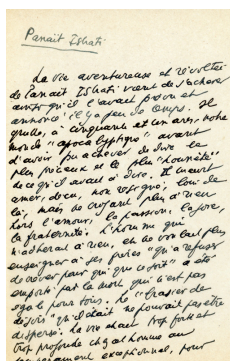 Panaït Istrati
La vie aventureuse et révoltée
de Panaït Istrati vient de s'achever
ainsi qu'il l'avait prévu et
annoncé il y a peu de temps. Il
quitte, à cinquante et un ans, notre
monde "apocalyptique" avant
d'avoir pu achever de dire le
plus précieux et le plus "honnête"
de ce qu'il avait à dire. Il meurt
amer, déçu, non résigné, loin de
là, mais ne croyant plus à rien
hors l'amour, la passion, la joie,
la fraternité. L'homme qui
n'adhérait à rien, et ne voulait plus
enseigner à ses frères "qu'à refuser
de crever pour qui que ce soit" a été
emporté par la mort qui n'est pas
égale pour tous. Le "brasier de
désirs" qu'il était ne pouvait pas être
dispersé. La vie était trop forte et
trop profonde chez cet homme au
tempérament exceptionnel, pour